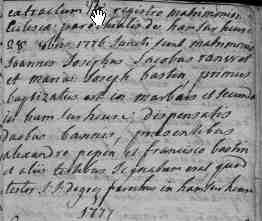 extractum ex registro matrimonior
Ecclesiae parochialis de ham sur heure
28 1776 juncti sunt matrimonio
Joannes Josephus Jacobus
et maria Joseph bastin, primus
baptizatus est in marbais et secunda
in ham sur heure; dispensatis
duobus bannis, praesentibus
alexandro pepin et francisco bastin
et aliis testibus signatum erat quod
testor J. J. degrez parochus in ham sur heure
1777